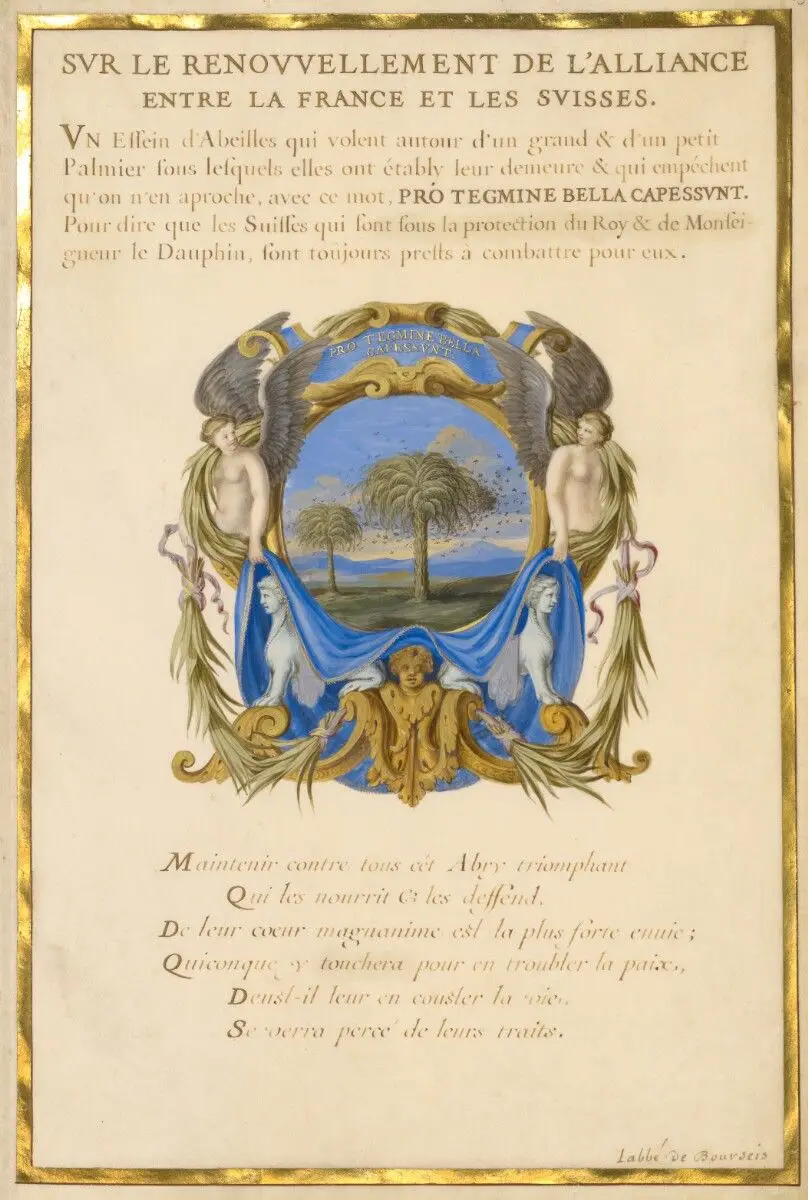 SVR LE RENOVVELLEMENT DE L'ALLIANCE
ENTRE LA FRANCE ET LES SVISSES.
VN Eſſein d'Abeilles qui volent autour d'un grand & d'un petit
Palmier ſous leſquels elles ont étably leur demeure & qui empéchent
qu'on n'en aproche, avec ce mot, PRÓ TEGMINE BELLA CAPESSVNT.
Pour dire que les Suiſſes qui ſont ſous la protection du Roy & de Monſei-
gneur le Dauphin, ſont toûjours preſts à combattre pour eux.
PRO TEGMINE BELLA
CAPESSVNT.
Maintenir contre tous cét Abry triomphant
Qui les nourrit & les deffend,
De leur coeur magnanime eſt la plus forte enuie;
Quiconque y touchera pour en troubler la paix,
Deuſt-il leur en couſter la vie,
Se verra percé de leurs traits.
l'abbé de Bourseis